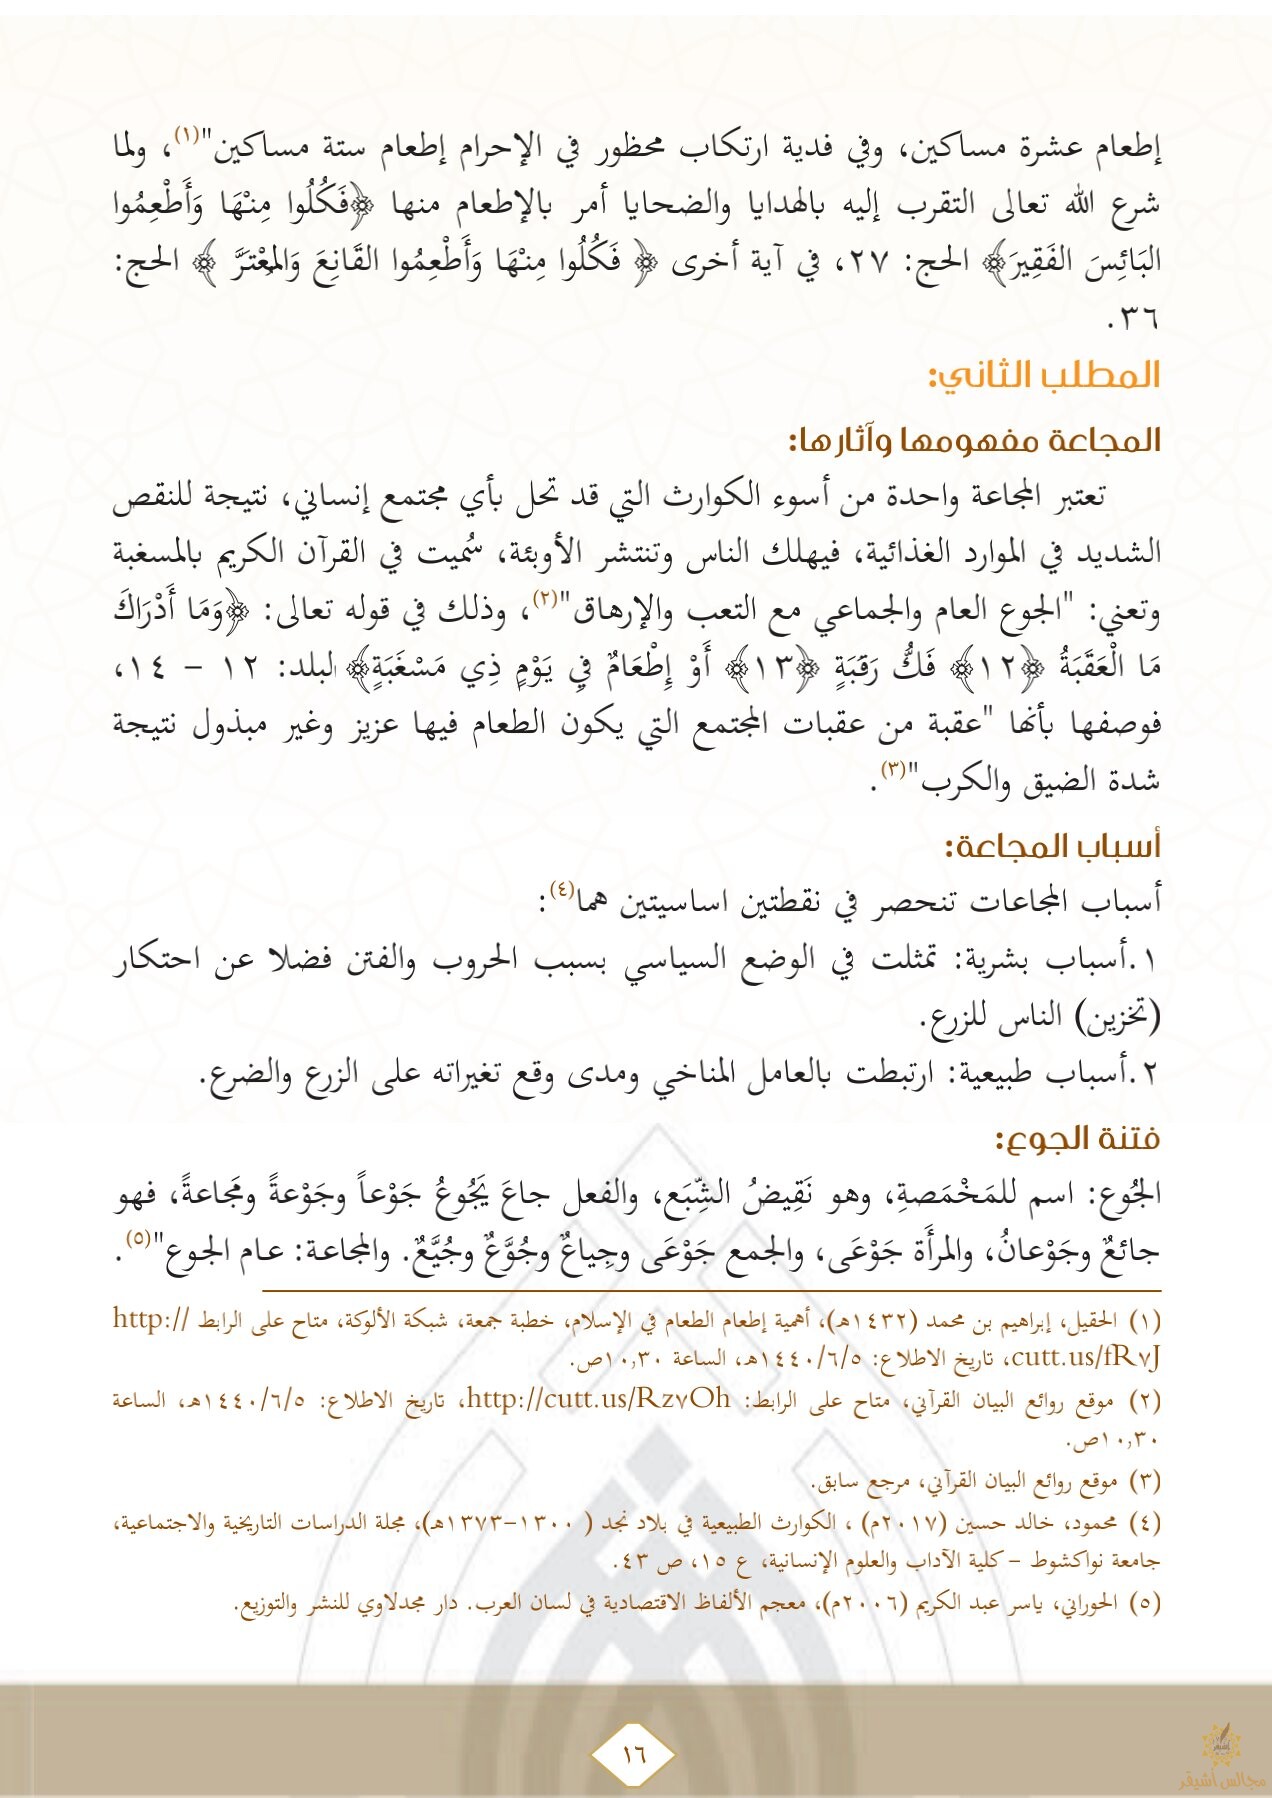 إطعام عشرة مساكين، وفي فدية ارتكاب محظور في الإحرام إطعام ستة مساكين"(١)، ولما
شرع الله تعالى التقرب إليه بالهدايا والضحايا أمر بالإطعام منها ﴿فَكُلُوا مِنْهَا وَأَطْعِمُوا
البَائِسَ الفَقِيرَ﴾ الحج: ٢٧، في آية أخرى ﴿ فَكُلُوا مِنْهَا وَأَطْعِمُوا القَانِعَ وَالمُعْتَرَّ ﴾ الحج:
٣٦.
المطلب الثاني:
المجاعة مفهومها وآثارها:
تعتبر المجاعة واحدة من أسوء الكوارث التي قد تحل بأي مجتمع إنساني، نتيجة للنقص
الشديد في الموارد الغذائية، فيهلك الناس وتنتشر الأوبئة، سُميت في القرآن الكريم بالمسغبة
وتعني: "الجوع العام والجماعي مع التعب والإرهاق"(٢)، وذلك في قوله تعالى: ﴿وَمَا أَدْرَاكَ
مَا الْعَقَبَةُ ﴿١٢﴾ فَكُّ رَقَبَةٍ ﴿١٣﴾ أَوْ إِطْعَامٌ فِي يَوْمٍ ذِي مَسْغَبَةٍ﴾ البلد: ١٢ - ١٤،
فوصفها بأنها "عقبة من عقبات المجتمع التي يكون الطعام فيها عزيز وغير مبذول نتيجة
شدة الضيق والكرب"(٣).
أسباب المجاعة:
أسباب المجاعات تنحصر في نقطتين اساسيتين هما(٤):
١.أسباب بشرية: تمثلت في الوضع السياسي بسبب الحروب والفتن فضلا عن احتكار
(تخزين) الناس للزرع.
٢.أسباب طبيعية: ارتبطت بالعامل المناخي ومدى وقع تغيراته على الزرع والضرع.
فتنة الجوع:
الجُوع: اسم للمَخْمَصةِ، وهو نَقِيضُ الشِّبَع، والفعل جاعَ يَجُوعُ جَوْعاً وجَوْعةً ومَجاعةً، فهو
جائعٌ وجَوْعانُ، والمرأَة جَوْعَى، والجمع جَوْعَى وجِياعٌ وجُوَّعٌ وجُيَّعٌ. والمجاعة: عام الجوع"(٥).
(١) الحقيل، إبراهيم بن محمد (١٤٣٢هـ)، أهمية إطعام الطعام في الإسلام، خطبة جمعة، شبكة الألوكة، متاح على الرابط http://
cutt.us/fR٧J، تاريخ الاطلاع: ١٤٤٠/٦/٥هـ، الساعة ١٠,٣٠ص.
(٢) موقع روائع البيان القرآني، متاح على الرابط: http://cutt.us/Rz٧Oh، تاريخ الاطلاع: ١٤٤٠/٦/٥هـ، الساعة
١٠,٣٠ص.
(٣) موقع روائع البيان القرآني، مرجع سابق.
(٤) محمود، خالد حسين (٢٠١٧م) ، الكوارث الطبيعية في بلاد نجد ( ١٣٠٠-١٣٧٣هـ)، مجلة الدراسات التاريخية والاجتماعية،
جامعة نواكشوط - كلية الآداب والعلوم الإنسانية، ع ١٥، ص ٤٣.
(٥) الحوراني، ياسر عبد الكريم (٢٠٠٦م)، معجم الألفاظ الاقتصادية في لسان العرب. دار مجدلاوي للنشر والتوزيع.
١٦
مجالس أشيقر